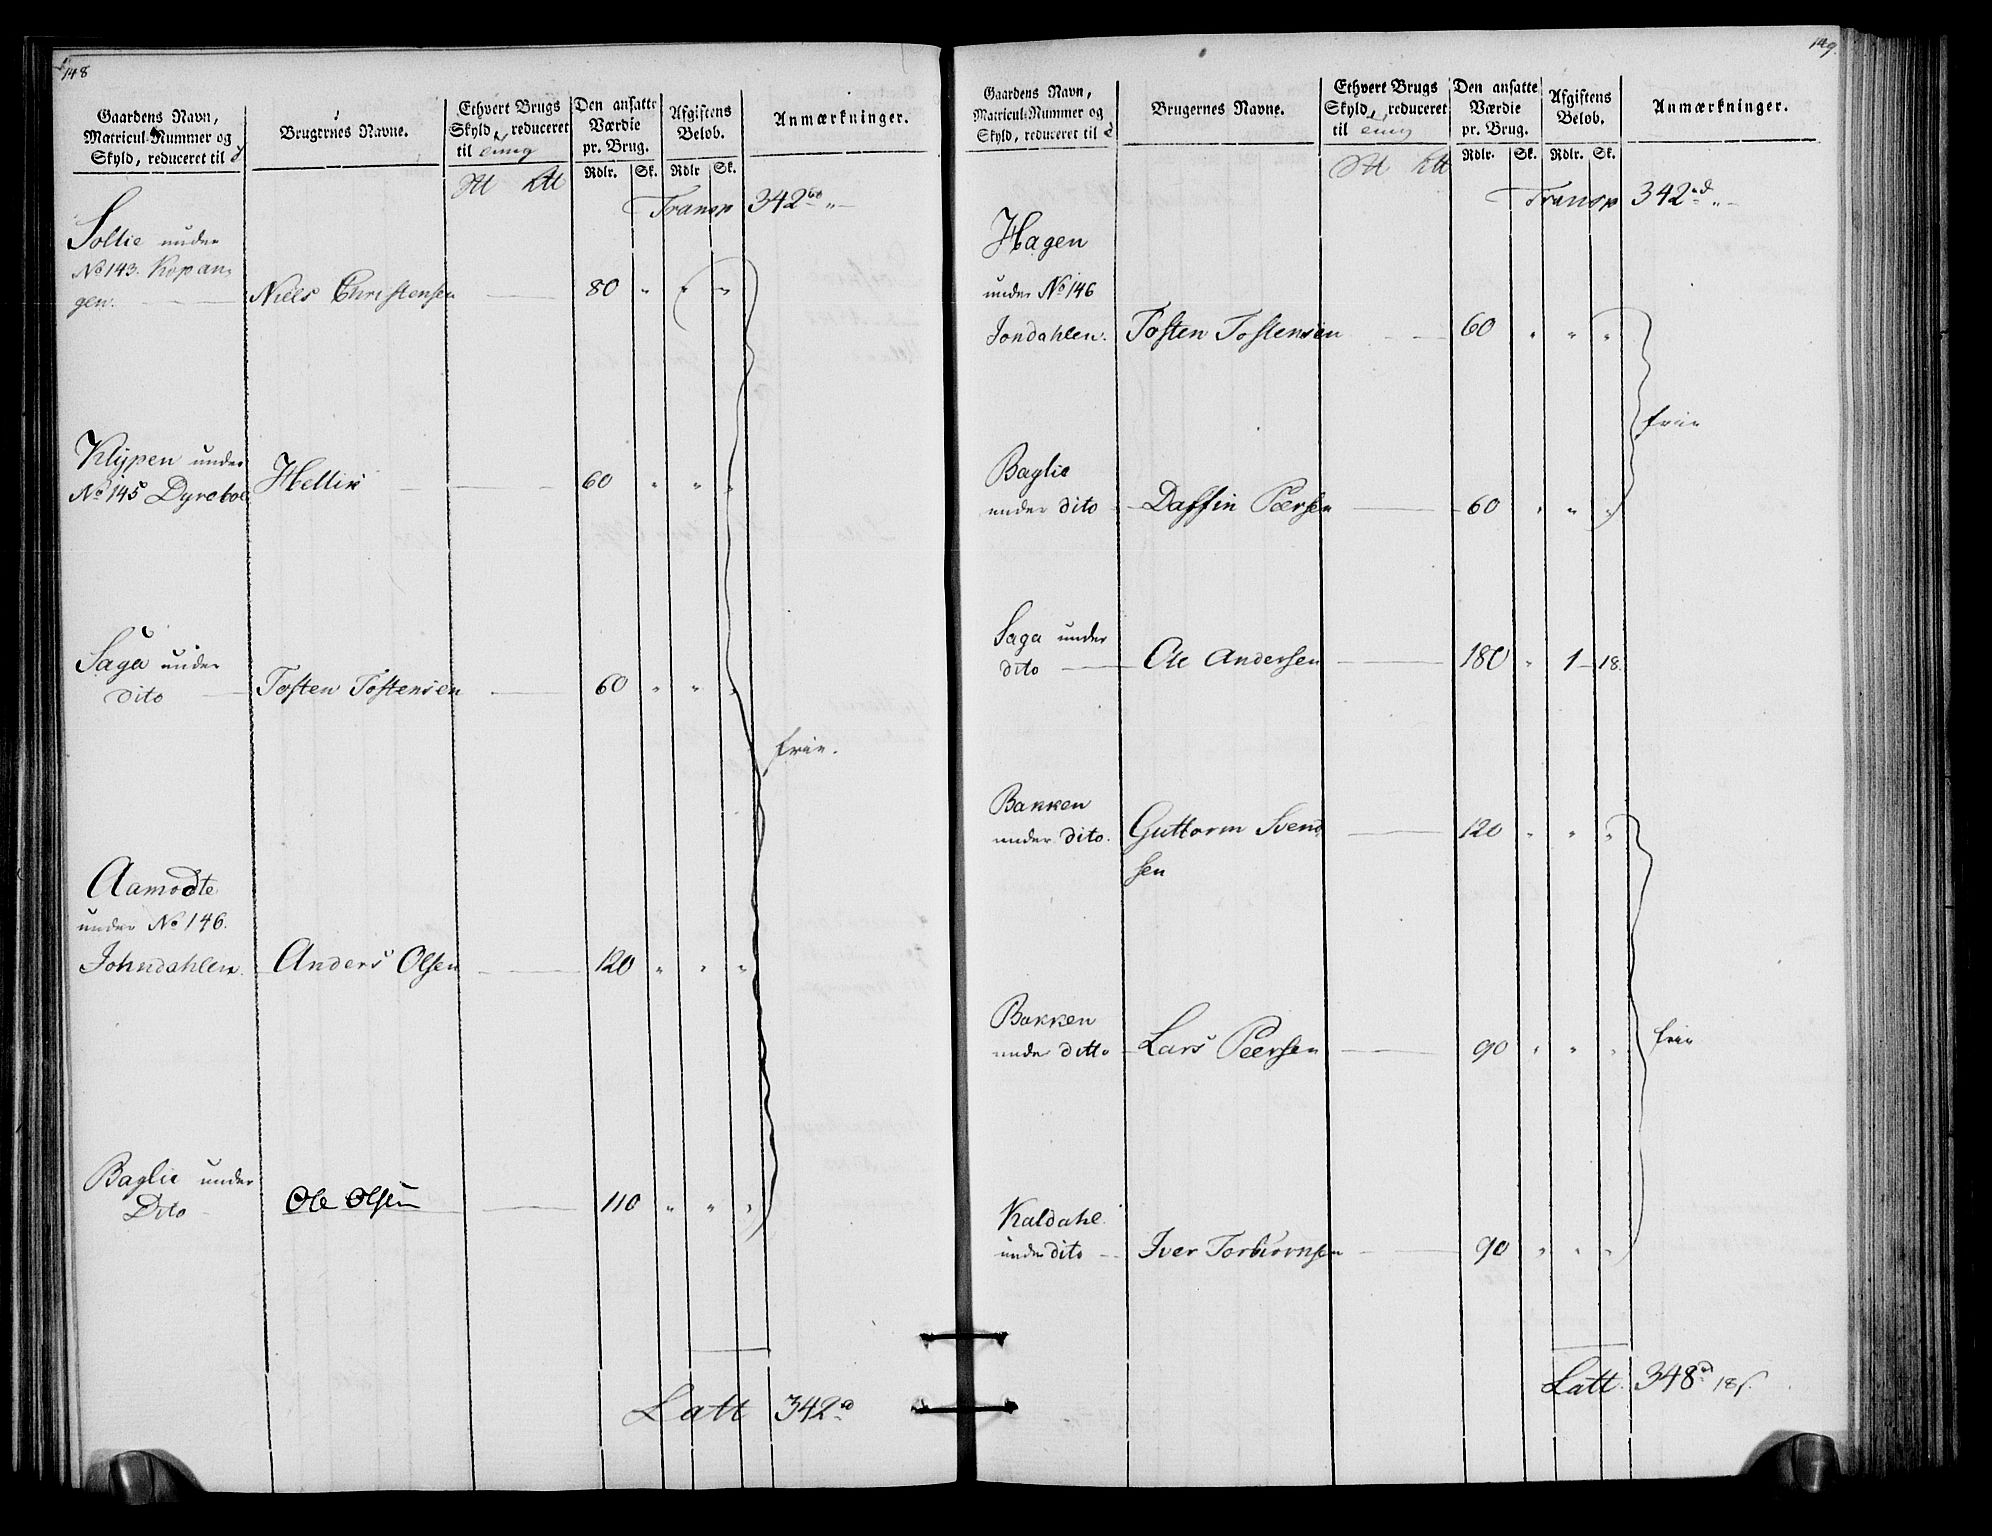 148
Gaardens Navn,
Matricul-Nummer og
Skyld, reduceret til
Brugernes Navne.
Ethvert Brugs
Skyld, reduceret
til
Den ansatte
Værdie
pr. Brug.
Rdlr. Sk.
Afgiftens
Beløb.
Rdlr Sk.
Anmærkninger.
Transp 342
Sollie under
No 143. Kopan,
gen. Niels Christensen 80 " " "
Klypen under
No 145 Dyreboe 60 " " "
Saga under
dito Tosten Tostensen 60 " " "
frie.
Aamodte
under No 146.
Johndahlen Anders Olsen 120 " " "
Baglie under
Dito Ole Olsen 110 " " "
Latt 342
149.
Gaardens Navn,
Matricul-Nummer og
Skyld, reduceret til
Brugernes Navne.
Ethvert Brugs
Skyld, reduceret
til
Den ansatte
Værdie
pr. Brug.
Rdlr. Sk.
Afgiftens
Beløb.
Rdlr. Sk.
Anmærkninger.
Transp 342
Hagen
under No 146
Jondahlen. Tosten Tostensen 60 " " "
frie
Baglie
under dito Daffin Peersen 60 " " "
Saga under
dito Ole Andersen 180 " 1 18.
Bakken
under dito. Guttorm Svend,
sen 120 " " "
Bakken
unde ditto Lars Peersen 90 " " "
frie
Kaldahl
under dito Iver Torbiørnsen 90 " " "
Latt. 348 18